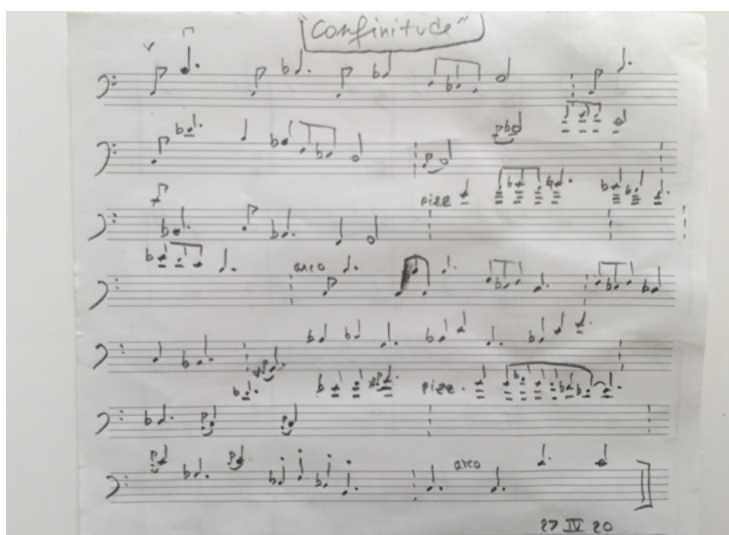 "Confinitude"
pizz
arco
pizz.
arco
27 IV 20